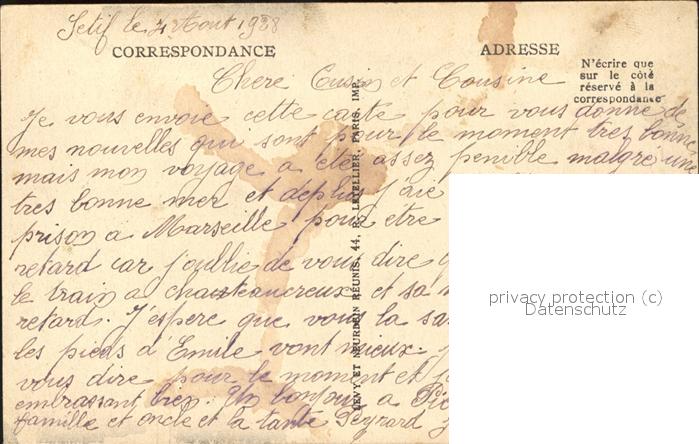 Setif le 4 Aout 1938
CORRESPONDANCE
ADRESSE
N'écrire que
sur le côté
réservé à la
correspondance
Chere Cusin et Cousine
Je vous envoie cette carte pour vous donne de
mes nouvelles qui sont pour le moment tres bonne
mais mon voyage a été assez penible malgré une
tres bonne mer et deplus j'aie
prison a Marseille pour être
retard car j'oublie de vous dire
le train a chateaucreux et sa
retard. J'espere que vous la
les pieds d'Emile vont mieux.
vous dire pour le moment et
embrassant bien. Un bonjour a
famille et oncle et la tante Peyrard
LEVY ET NEURDEIN RÉUNIS, 44, R. LETELLIER, PARIS, IMP.
privacy protection (c)
Datenschutz